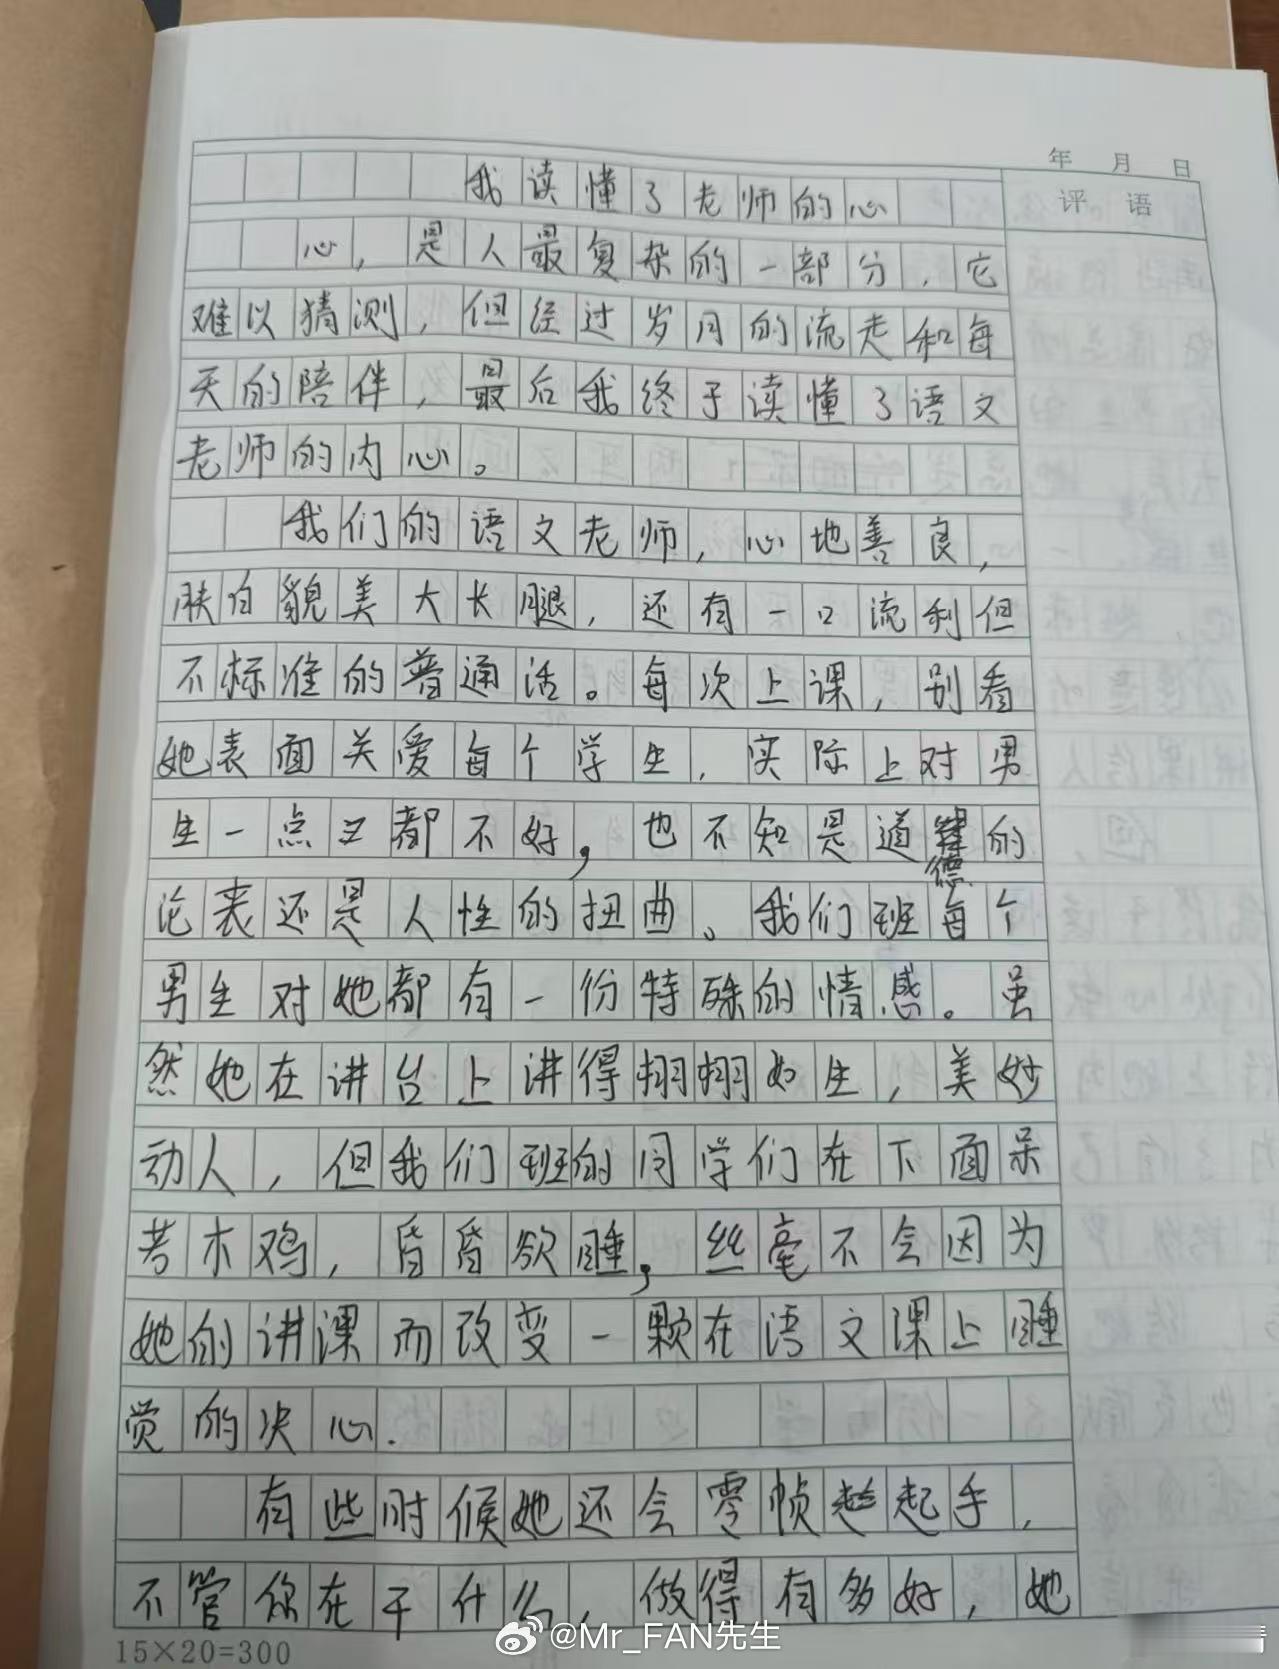 年 月 日
评 语
我读懂了老师的心
心，是人最复杂的一部分，它
难以猜测，但经过岁月的流走和每
天的陪伴，最后我终于读懂了语文
老师的内心。
我们的语文老师，心地善良，
肤白貌美大长腿，还有一口流利但
不标准的普通话。每次上课，别看
她表面关爱每个学生，实际上对男
生一点又都不好，也不知是道德的
沦丧还是人性的扭曲。我们班每个
男生对她都有一份特殊的情感。虽
然她在讲台上讲得栩栩如生，美妙
动人，但我们班的同学们在下面呆
若木鸡，昏昏欲睡，丝毫不会因为
她的讲课而改变一颗在语文课上睡
觉的决心.
有些时候她还会零帧起手，
不管你在干什么，做得有多好，她
15×20=300
@Mr_FAN先生